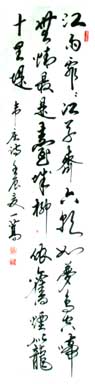 江雨霏〻江草齊六朝如夢鳥空啼
無情最是臺城柳依舊煙籠
十里堤 韋莊詩壬辰夏一